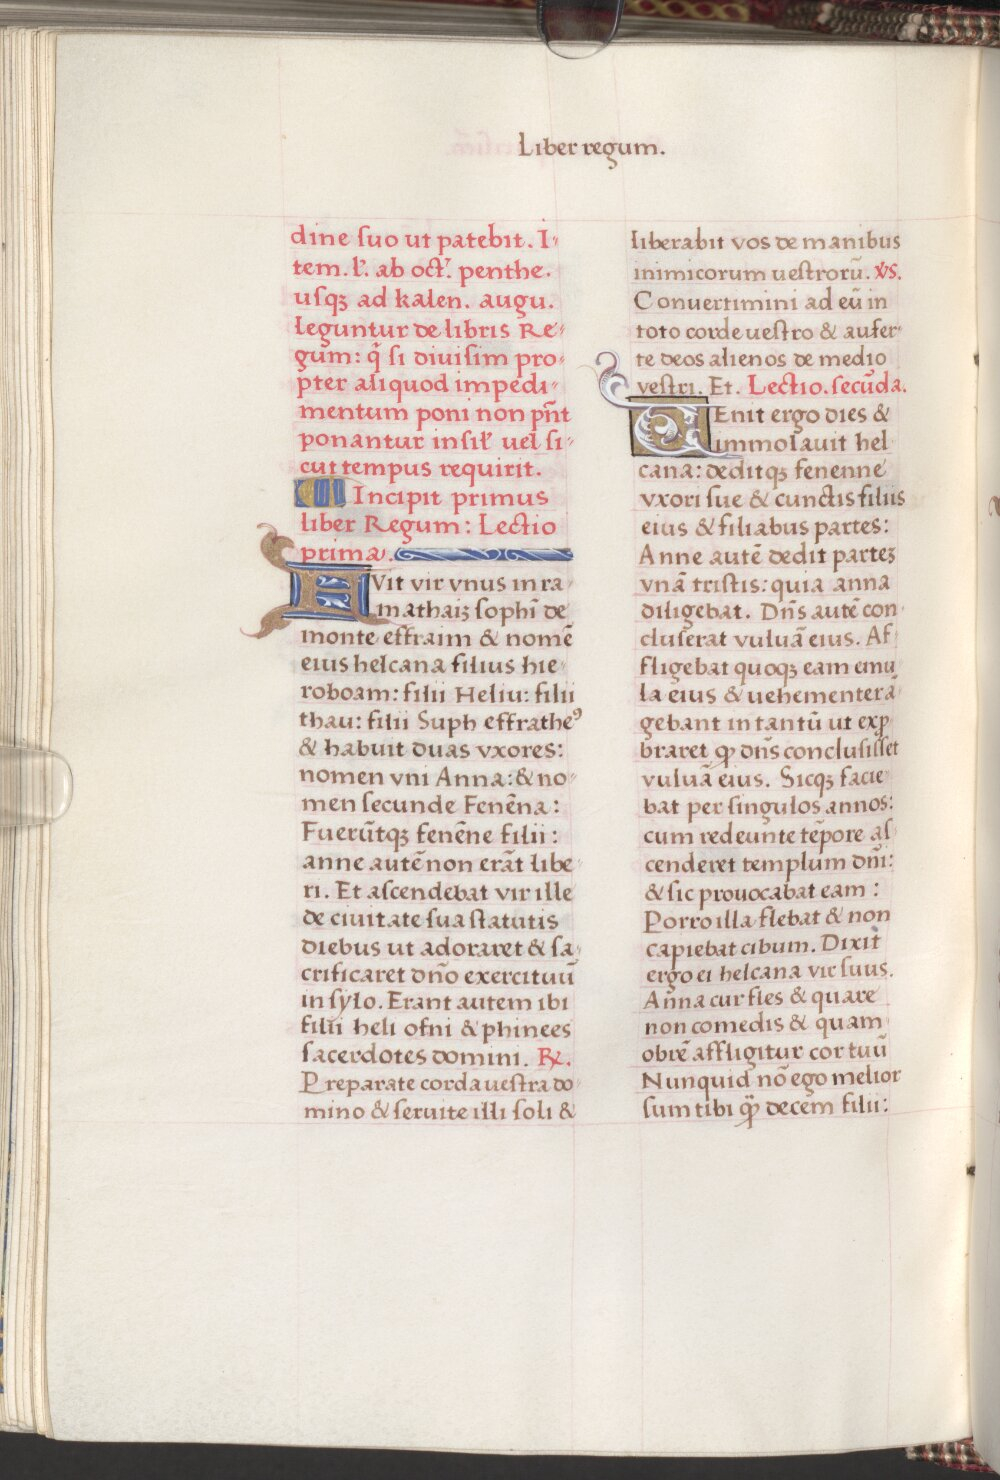 Liber regum.
dine suo ut patebit. I-
tem. l'. ab oct'. penthe.
usqꝫ ad kalen. augu.
leguntur de libris Re-
gum: q̄ si diuisim pro-
pter aliquod impedi-
mentum poni non pn̄t
ponantur insil' uel si-
cut tempus requirit.
Incipit primus
liber Regum: Lectio
prima.
FVit vir vnus in ra-
mathaiꝫ sophī de
monte effraim & nomē
eius helcana filius hie-
roboam: filii Heliu: filii
thau: filii Suph effratheꝰ
& habuit duas vxores:
nomen vni Anna: & no-
men secunde Fenēna:
Fuerūtqꝫ fenēne filii:
anne autē non erāt libe-
ri. Et ascendebat vir ille
de ciuitate sua statutis
diebus ut adoraret & sa-
crificaret dn̄o exercituū
in sylo. Erant autem ibi
filii heli ofni & phinees
sacerdotes domini. ℞.
Preparate corda uestra do-
mino & seruite illi soli &
liberabit vos de manibus
inimicorum uestrorū. v̄s.
Conuertimini ad eū in
toto corde uestro & aufer-
te deos alienos de medio
vestri. Et. Lectio. secūda.
VEnit ergo dies &
immolauit hel
cana: deditqꝫ fenenne
vxori sue & cunctis filiis
eius & filiabus partes:
Anne autē dedit parteꝫ
vnā tristis: quia anna
diligebat. Dn̄s autē con-
cluserat vuluā eius. Af-
fligebat quoqꝫ eam emu-
la eius & uehementer ā-
gebant in tantū ut exꝓ
braret ꝙ dn̄s conclusisset
vuluā eius. Sicqꝫ facie-
bat per singulos annos:
cum redeunte tēpore as-
cenderet templum dn̄i:
& sic prouocabat eam:
Porro illa flebat & non
capiebat cibum. Dixit
ergo ei helcana vir suus.
Anna cur fles & quare
non comedis & quam
obrē affligitur cor tuū
Nunquid nō ego melior
sum tibi ꝙ̄ decem filii: